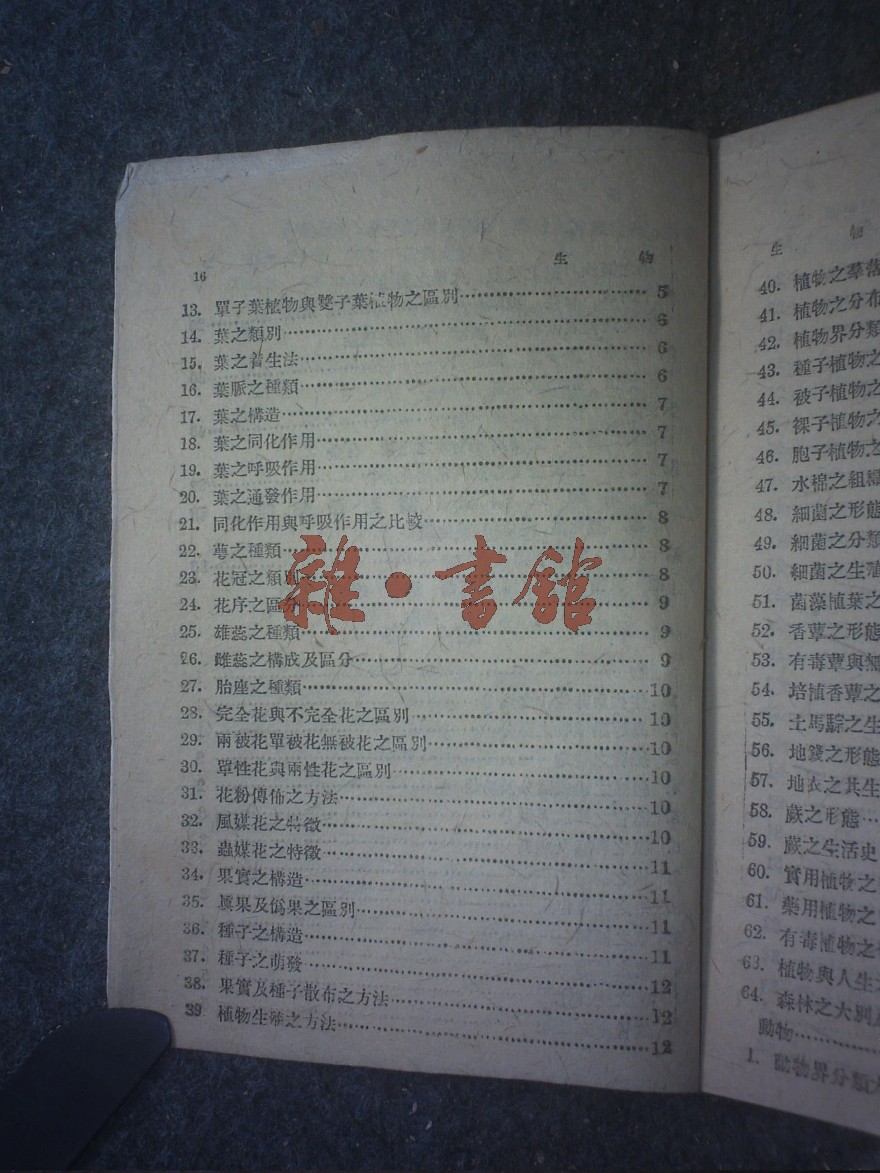 16
生 物
13. 單子葉植物與雙子葉植物之區別……5
14. 葉之類別……6
15. 葉之着生法……6
16. 葉脈之種類……6
17. 葉之構造……7
18. 葉之同化作用……7
19. 葉之呼吸作用……7
20. 葉之通發作用……7
21. 同化作用與呼吸作用之比較……8
22. 萼之種類……8
23. 花冠之類別……8
24. 花序之區分……9
25. 雄蕊之種類……9
26. 雌蕊之構成及區分……9
27. 胎座之種類……10
28. 完全花與不完全花之區別……10
29. 兩被花單被花無被花之區別……10
30. 單性花與兩性花之區別……10
31. 花粉傳佈之方法……10
32. 風媒花之特徵……10
33. 蟲媒花之特徵……11
34. 果實之構造……11
35. 眞果及僞果之區別……11
36. 種子之構造……11
37. 種子之萌發……12
38. 果實及種子散布之方法……12
39 植物生殖之方法……12
雜·書館
生 物
40. 植物之羣落
41. 植物之分布
42. 植物界分類
43. 種子植物之
44. 被子植物之
45. 裸子植物之
46. 胞子植物之
47. 水棉之組織
48. 細菌之形態
49. 細菌之分類
50. 細菌之生殖
51. 菌藻植葉之
52. 香蕈之形態
53. 有毒蕈與無
54. 培植香蕈之
55. 土馬騌之生
56. 地錢之形態
57. 地衣之共生
58. 蕨之形態…
59. 蕨之生活史
60. 實用植物之
61. 藥用植物之
62. 有毒植物之
63. 植物與人生
64. 森林之大別
動物……
1. 動物界分類